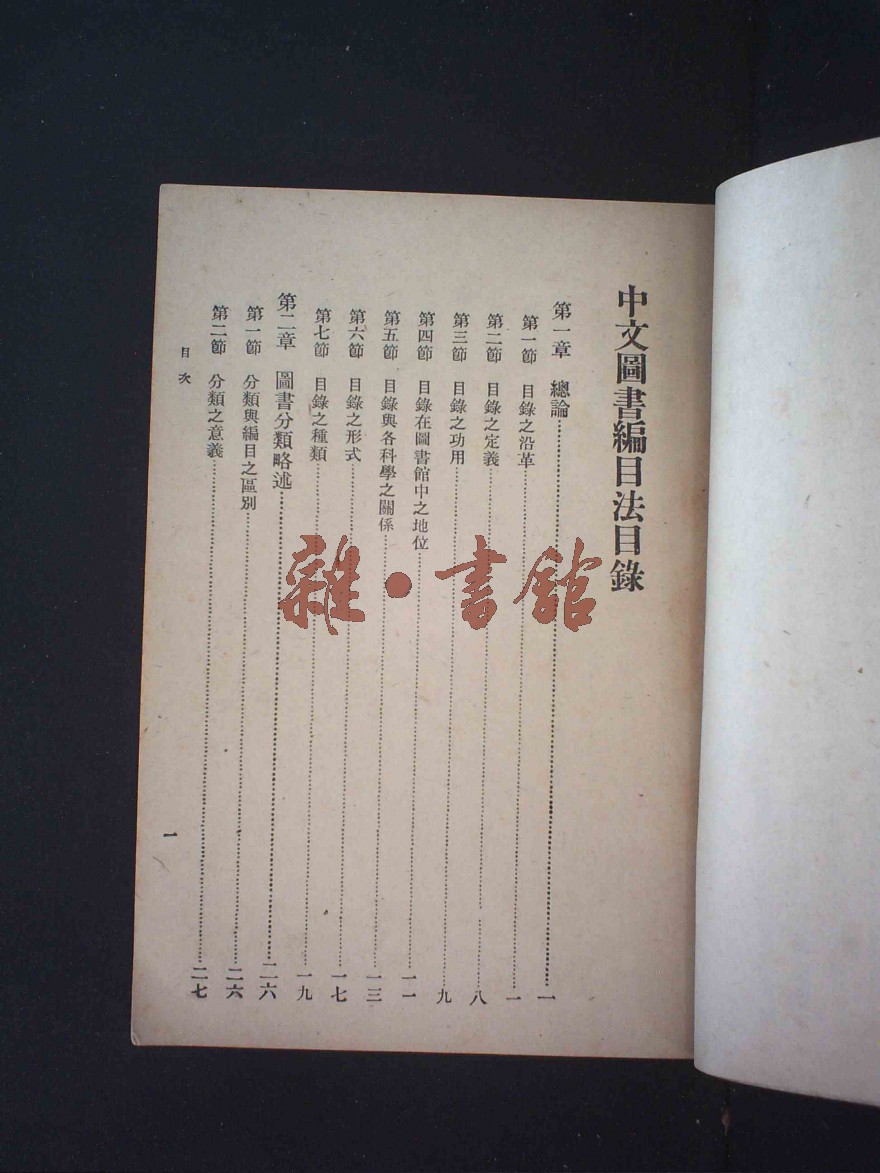 中文圖書編目法目錄
第一章 總論……一
第一節 目錄之沿革……一
第二節 目錄之定義……八
第三節 目錄之功用……九
第四節 目錄在圖書館中之地位……一一
第五節 目錄與各科學之關係……一三
第六節 目錄之形式……一七
第七節 目錄之種類……一九
第二章 圖書分類略述……二六
第一節 分類與編目之區別……二六
第二節 分類之意義……二七
目次
一
雜·書館